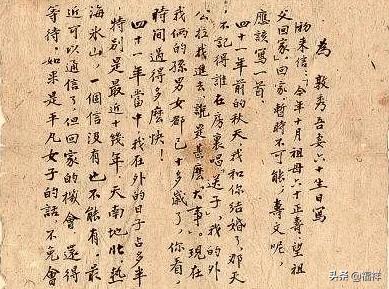 為 敦秀吾妻六十生日寫
來信：今年十月祖母六十正壽望祖
父回家」。回家，暫時不可能，壽文呢，
應該寫一首。
四十一年前的秋天，我和你結婚了，那天
不記得誰在房裏唱送子，我的外
公拉我進去，說是甚麼大事。現在
我倆的孫男女都已十多歲了，你看，
時間過得多麼快！
四十一年當中，我在外的日子占多半
特別是最近十幾年，天南地北，熱
海冰山，一個信沒有也不能有，最
近可以通信了，但回家的機會還得
等待。如果是平凡女子的話，不免會
头条 @福祥